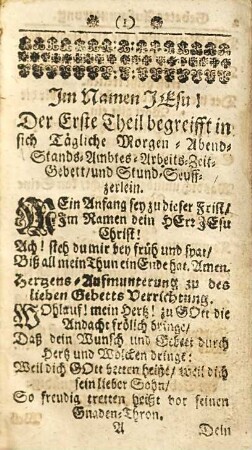 (1)
Im Namen JEsu!
Der Erste Theil begreifft in
sich Tägliche Morgen- Abend-
Stands-Ambtes-Arbeits-Zeit-
Gebett/und Stund-Seuff-
zerlein.
MEin Anfang sey zu dieser Frist/
Im Namen dein HErr JEsu
Christ!
Ach! steh du mir bey früh und spat/
Biß all mein Thun ein Ende hat. Amen.
Hertzens-Aufmunterung zu des
lieben Gebetts Verrichtung.
WOhlauf! mein Hertz! zu GOtt die
Andacht frölich bringe/
Daß dein Wunsch und Gebet durch
Hertz und Wolcken dringe:
Weil dich GOtt betten heißt/ weil dich
sein lieber Sohn/
So freudig tretten heißt vor seinen
Gnaden-Thron.
A Dein